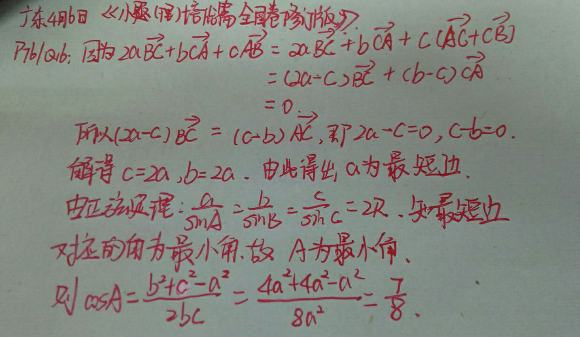 广东4月6日《小题(理)培优篇 全国卷修订版》
P76/Q16: 因为 2a→BC + b→CA + c→AB = 2a→BC + b→CA + c(→AC + →CB)
= (2a-c)→BC + (b-c)→CA
= 0.
所以(2a-c)→BC = (c-b)→AC, 即 2a-c=0, c-b=0.
解得 c=2a, b=2a. 由此得出 a为最短边.
由正弦定理: a/sinA = b/sinB = c/sinC = 2R. 知最短边
对应的角为最小角. 故 A为最小角.
则 cosA = (b²+c²-a²)/2bc = (4a²+4a²-a²)/8a² = 7/8.